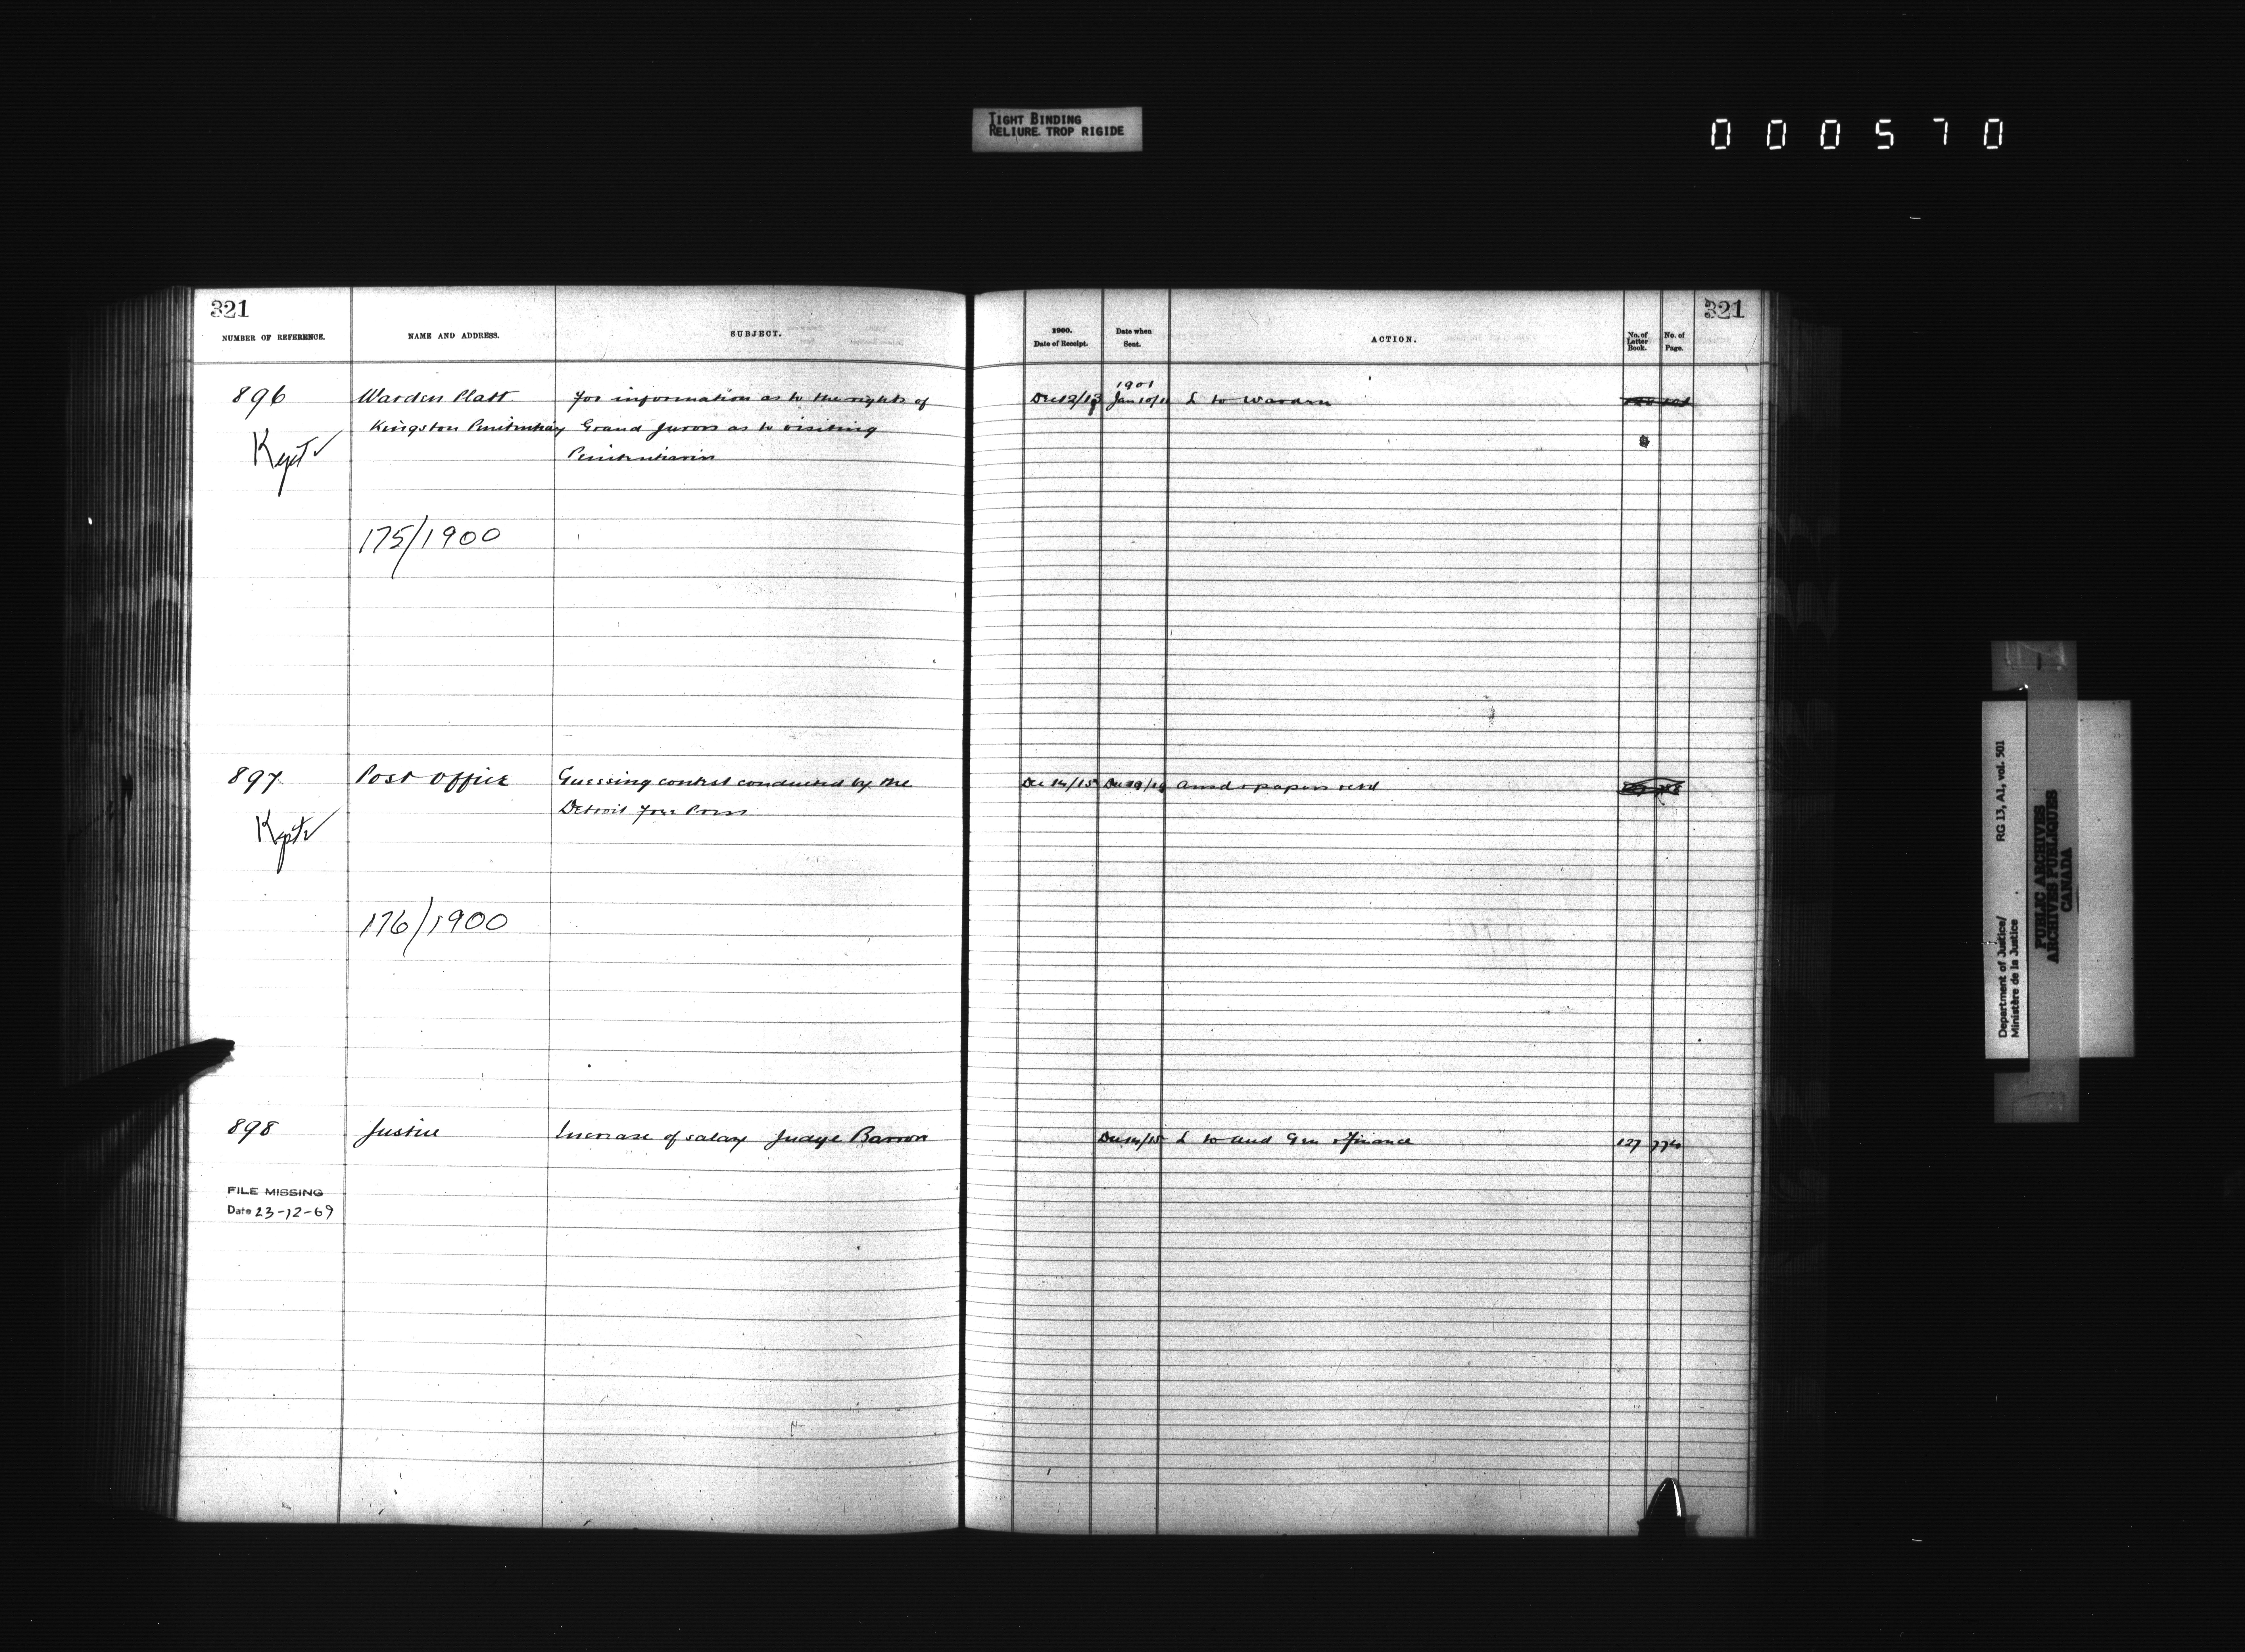 TIGHT BINDING
RELIURE TROP RIGIDE
000570
321
NUMBER OF REFERENCE.
NAME AND ADDRESS.
SUBJECT.
1900.
Date of Receipt.
Date when
Sent.
ACTION.
No. of
Letter
Book.
No. of
Page.
321
896
Warden Platt
for information as to the rights of
Kingston Penitentiary
Grand Jurors as to visiting
Penitentiaries
Kept
175/1900
1901
Jan 10/11
L to Warden
897
Post Office
Guessing contest conducted by the
Detroit Free Press
Kept
176/1900
Dec 14/15
Ansd & papers retd
898
Justice
Increase of salary Judge Barron
Dec 14/15
L to Aud Gen & Finance
127
FILE MISSING
Date 23-12-69
Department of Justice/
Ministère de la Justice
RG 13, A1, vol. 501
PUBLIC ARCHIVES
ARCHIVES PUBLIQUES
CANADA